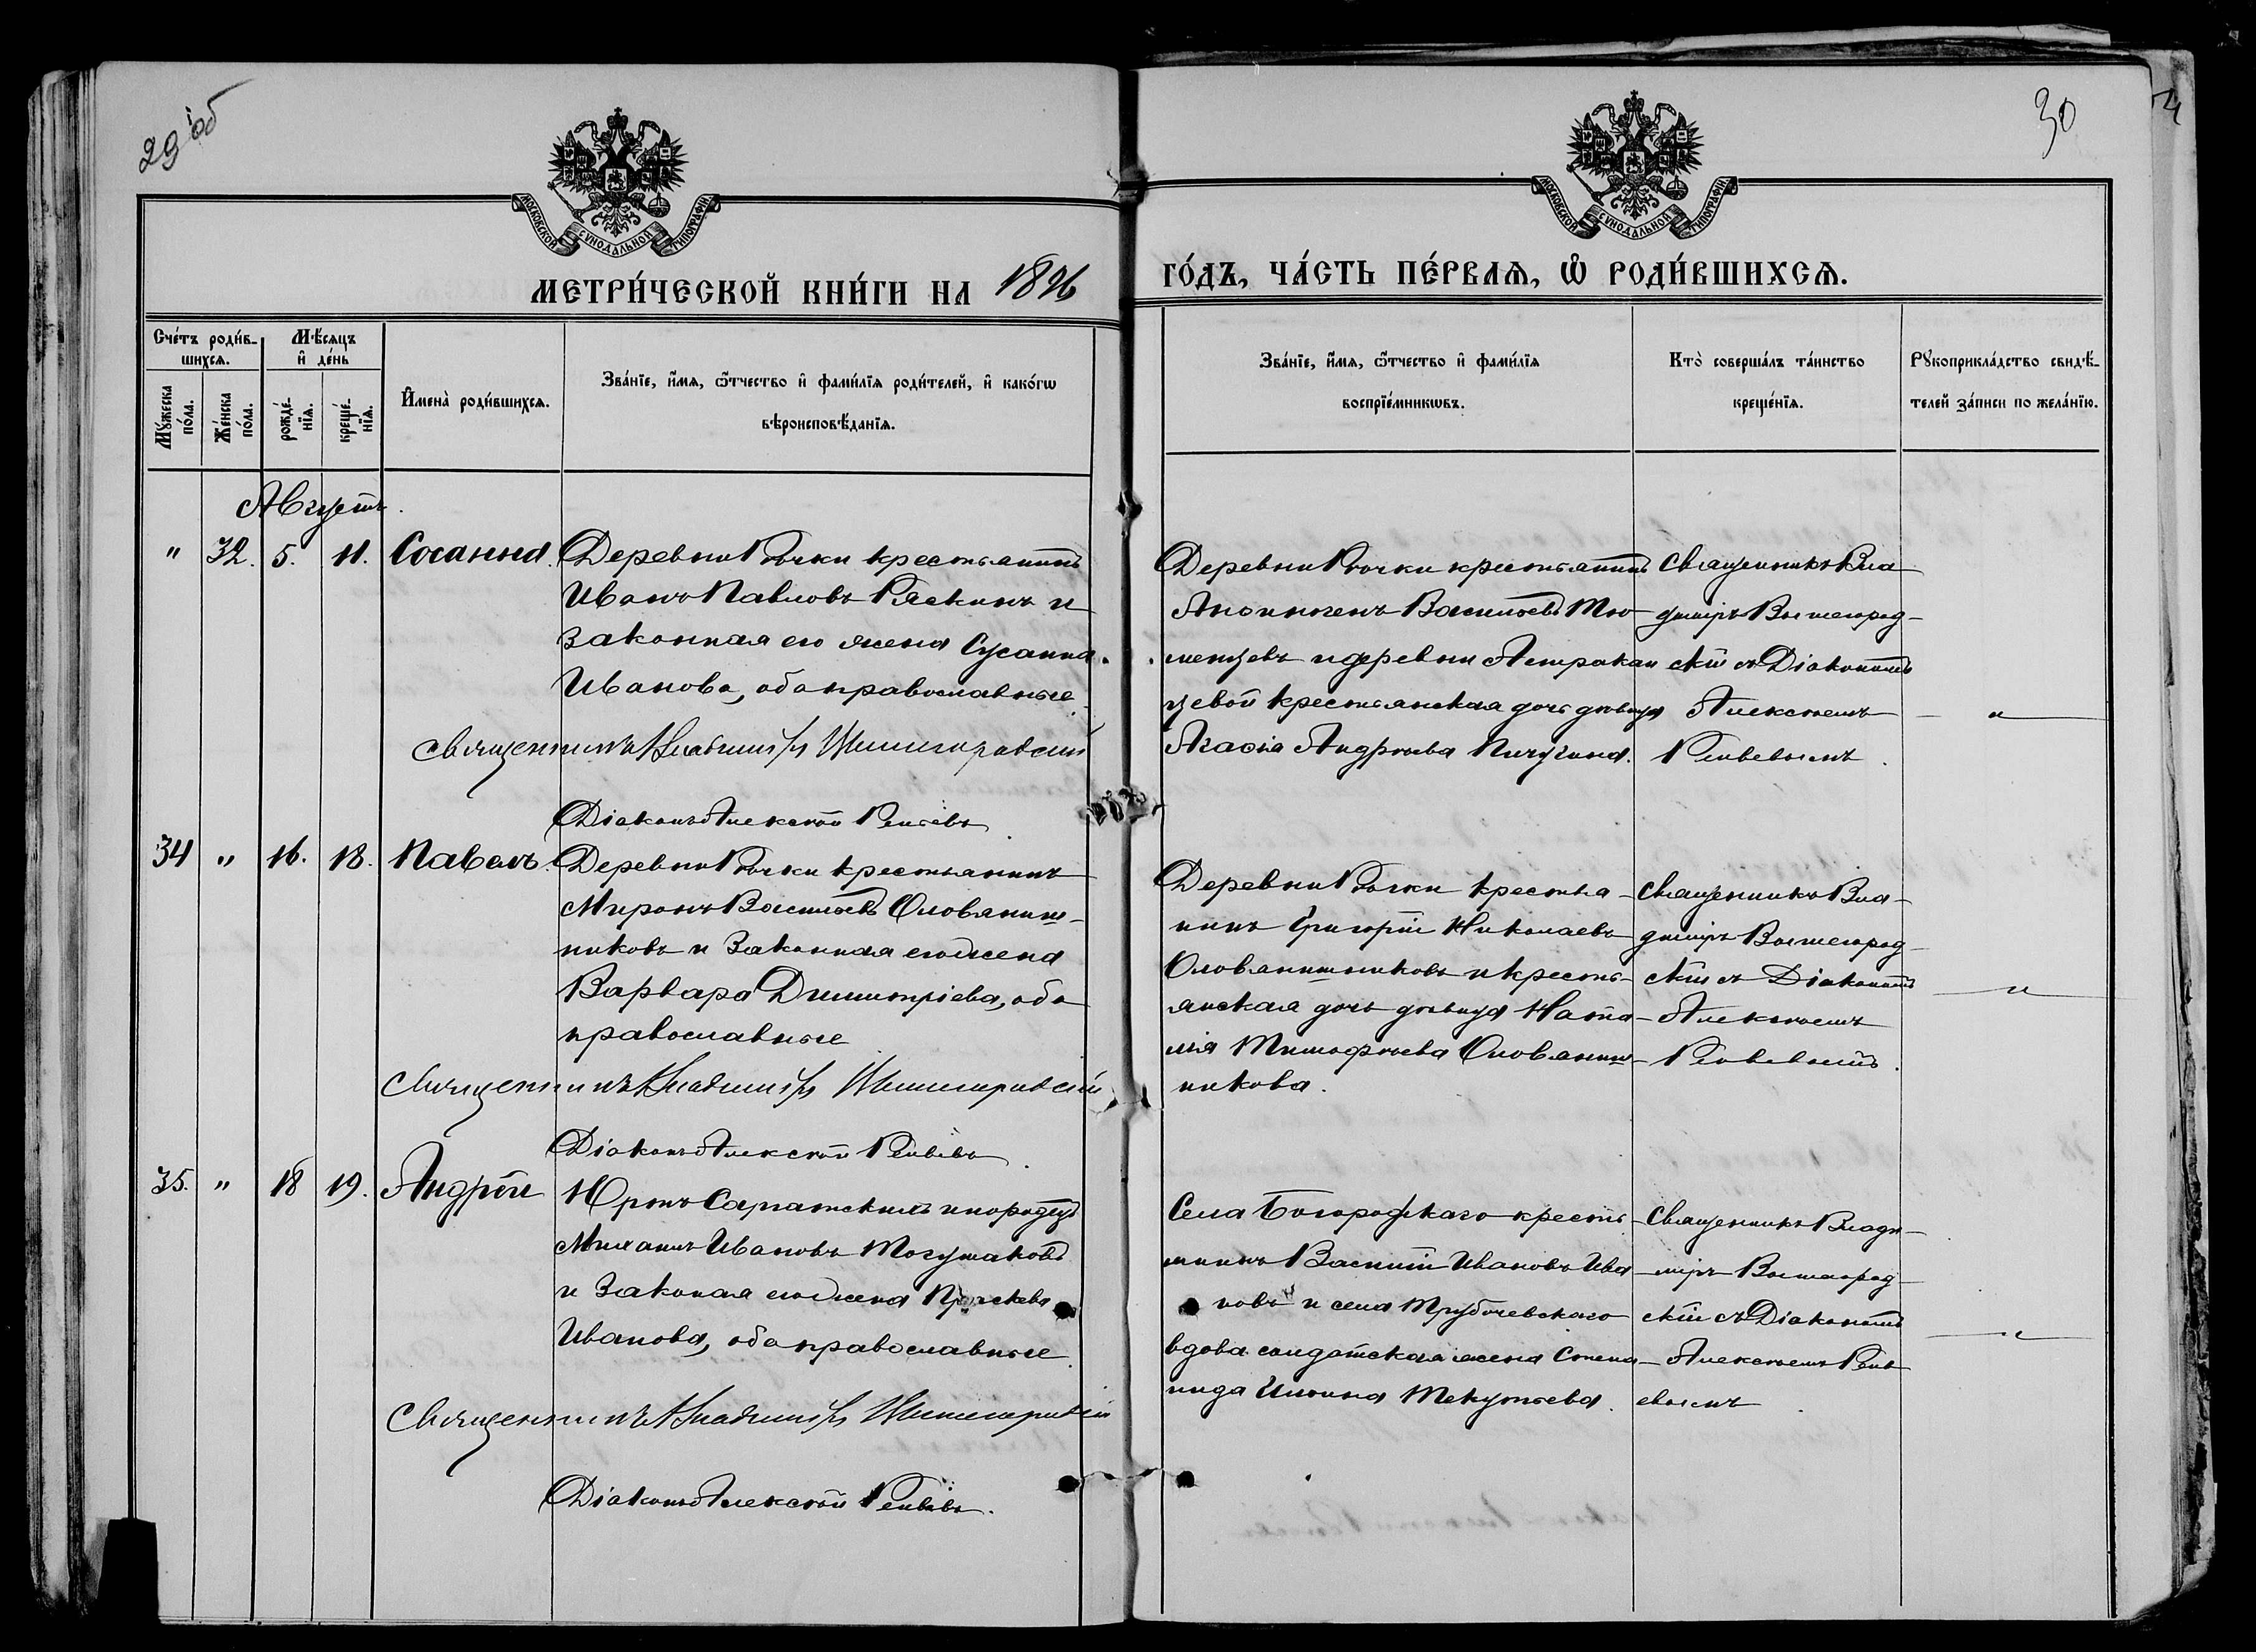 29 об
30
МОСКОВСКОЙ СѴНОДАЛЬНОЙ ТИПОГРАФІИ.
МОСКОВСКОЙ СѴНОДАЛЬНОЙ ТИПОГРАФІИ.
МЕТРИ́ЧЕСКОЙ КНИ́ГИ НА 1896
ГО́ДЪ, ЧА́СТЬ ПЕ́РВАѦ, Ѽ РОДИ́ВШИХСѦ.
Сче́тъ роди́в-
шихсѧ.
Мѣ́сѧцъ
и҆ де́нь
Мꙋ́жеска
по́ла.
Же́нска
по́ла.
рожде́-
нїѧ.
креще́-
нїѧ.
И҆мена̀ роди́вшихсѧ.
Зва́нїе, и҆́мѧ, ѻ҆́тчество и҆ фами́лїѧ роди́телей, и҆ како́гѡ
вѣроисповѣ́данїѧ.
Зва́нїе, и҆́мѧ, ѻ҆́тчество и҆ фами́лїѧ
воспрїе́мникѡвъ.
Кто̀ соверша́лъ та́инство
креще́нїѧ.
Рꙋкоприкла́дство свидѣ́-
телей за́писи по жела́нїю.
Августъ.
" 32. 5. 11. Сосанна.
Деревни Рѣчки крестьянинъ
Иванъ Павловъ Ряскинъ и
законная его жена Сусанна
Иванова, оба православные.
Священникъ Владиміръ Вышегородскій
Діаконъ Алексѣй
Деревни Рѣчки крестьянинъ
Васильевъ Тю-
менцевъ и деревни Астракан
цевой крестьянская дочь дѣвица
Агафія Андреева Пичугина.
Священникъ Вла
диміръ Вышегород-
скій съ Діакономъ
Алексѣемъ
"
34 " 16. 18. Павелъ.
Деревни Рѣчки крестьянинъ
Миронъ Васильевъ Оловяниш-
никовъ и законная его жена
Варвара Димитріева, оба
православные
Священникъ Владиміръ Вышегородскій
Діаконъ Алексѣй
Деревни Рѣчки крестья-
нинъ Григорій Николаевъ
Оловянишниковъ и кресть-
янская дочь дѣвица Ната-
лія Тимофѣева Оловяниш-
никова.
Священникъ Вла-
диміръ Вышегород-
скій съ Діакономъ
Алексѣемъ
"
35. " 18 19. Андрей
Юртъ инородецъ
Михаилъ Ивановъ
и законая его жена
Иванова, оба православные.
Священникъ Владиміръ Вышегородскій
Діаконъ Алексѣй
Села Богородскаго кресть-
янинъ Василій Ивановъ Ива
новъ и села Трубочевскаго
вдова солдатская жена Степа-
нида Ильина Текутьева.
Священникъ Влади-
міръ Вышегород-
скій съ Діакономъ
Алексѣемъ
"